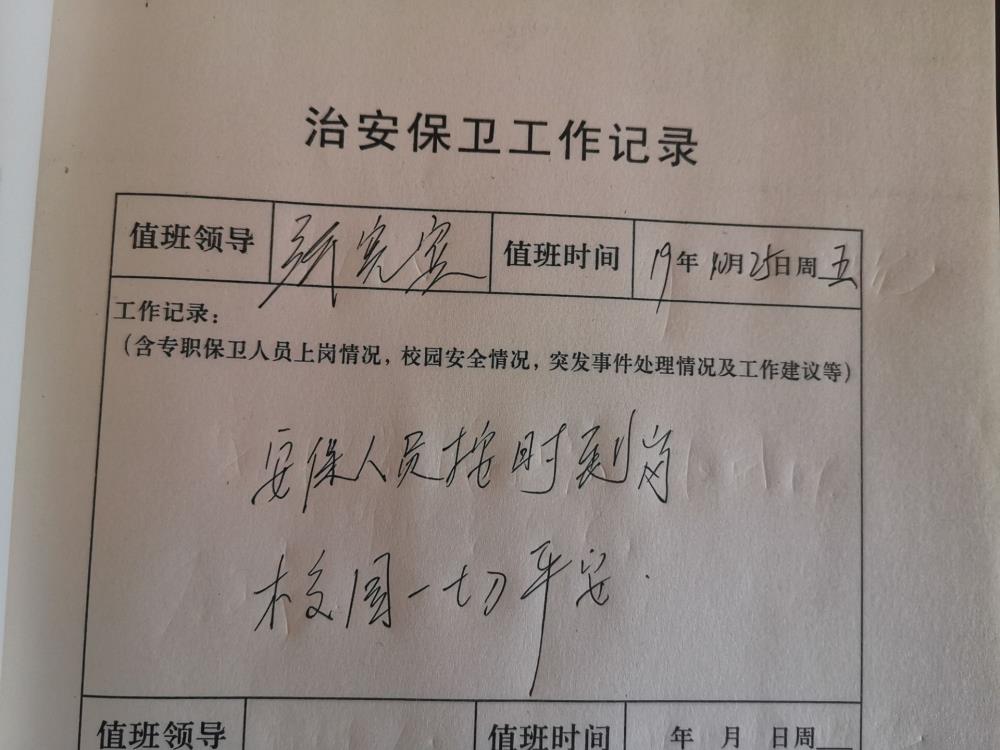 治安保卫工作记录
值班领导 宪宾 值班时间 19年10月25日周五
工作记录：
（含专职保卫人员上岗情况，校园安全情况，突发事件处理情况及工作建议等）
安保人员按时到岗
校园一切平安.
值班领导 值班时间 年 月 日周